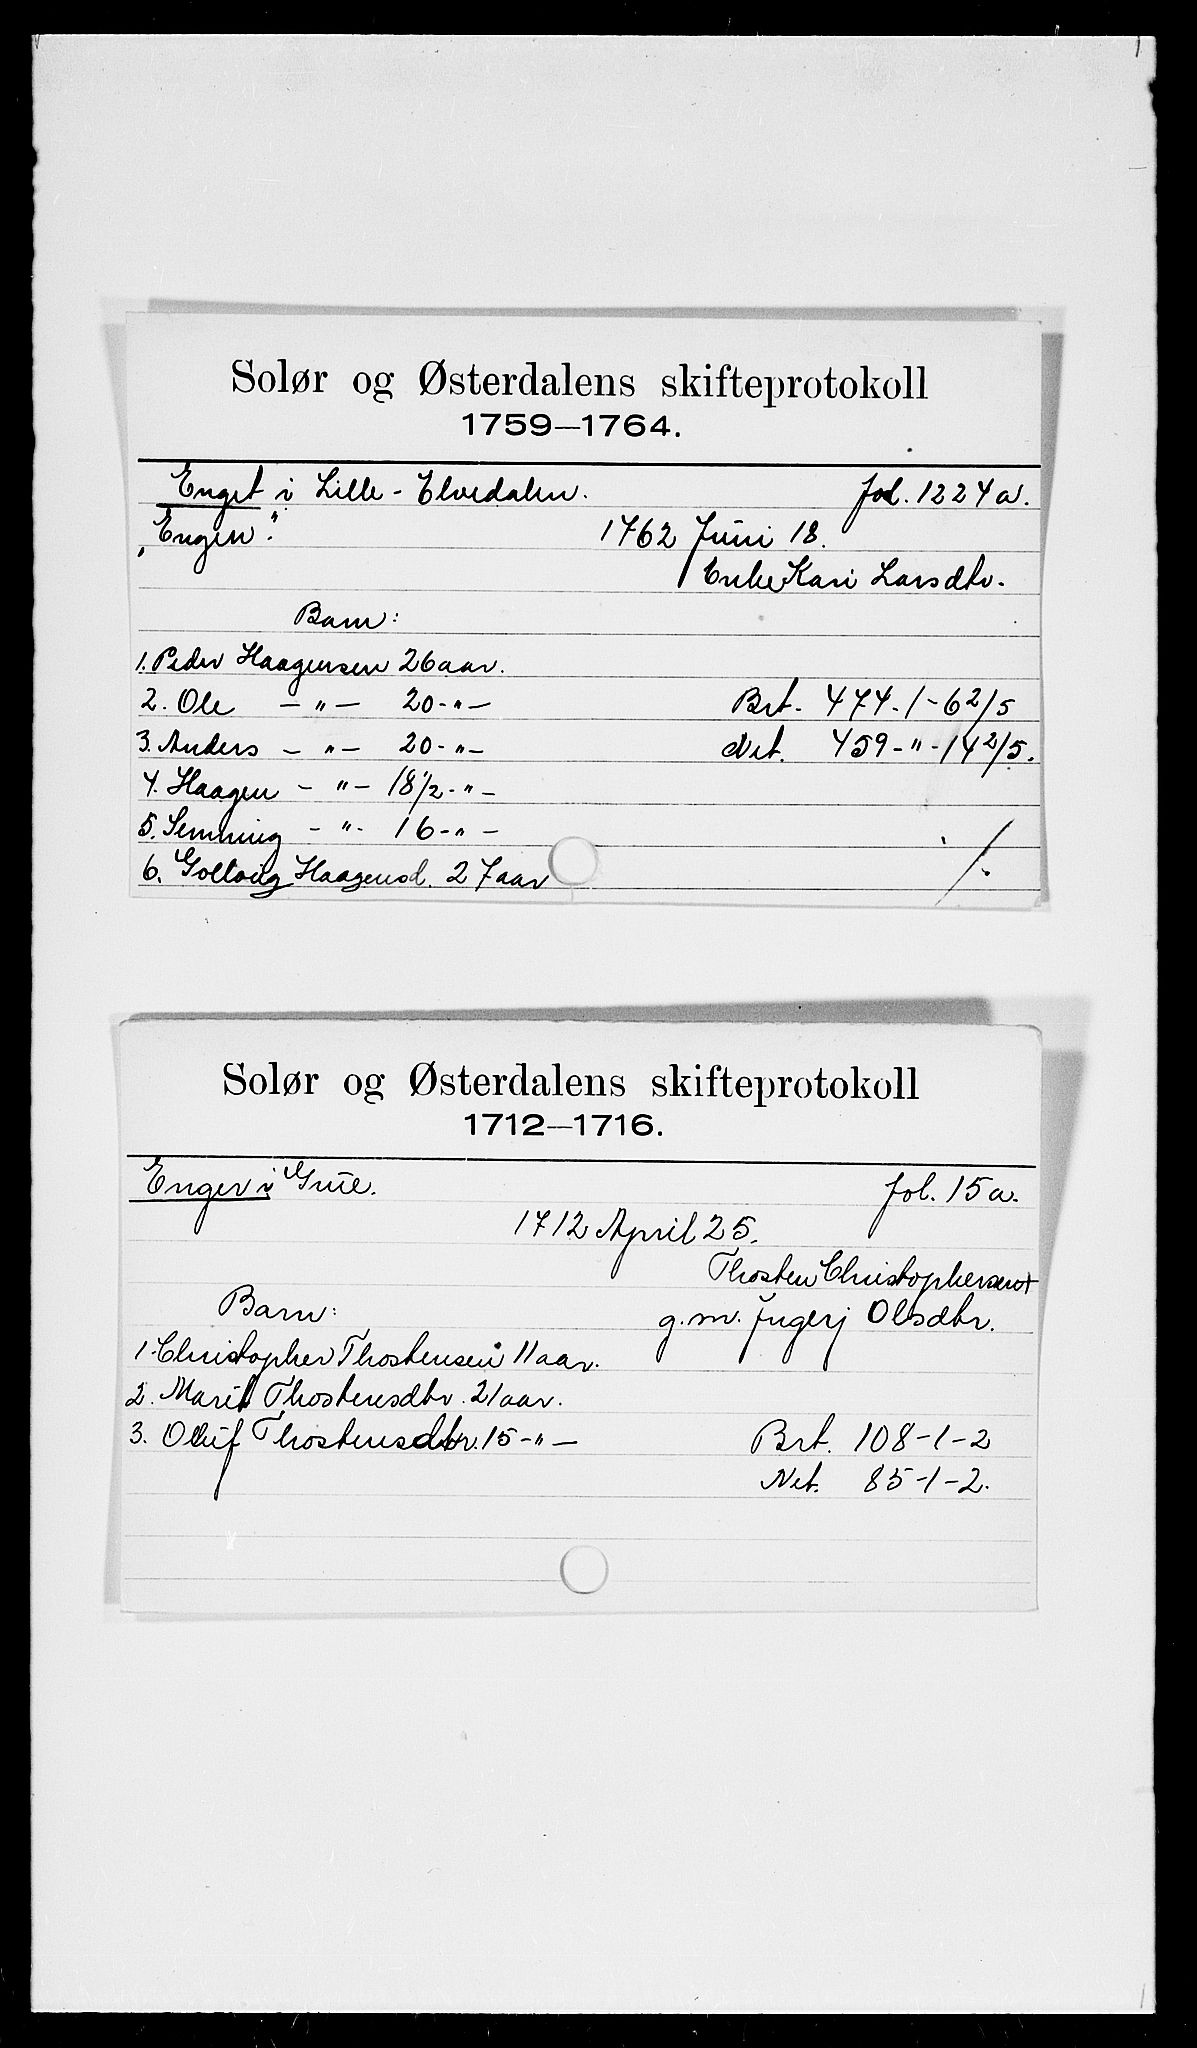 Solør og Østerdalens skifteprotokoll
1759—1764.
Enget i Lille-Elvedalen. fol. 1224a.
„Engen". 1762 Juni 18.
Enke Kari Larsdtr.
Barn:
1. Peder Haagensen 26 aar.
2. Ole — " — 20 - " — Brt. 474-1-6 2/5
3. Anders — " — 20 - " — Net. 459 - " - 14 2/5.
4. Haagen — " — 18 1/2 - " —
5. Semming — " - 16 - " —
6. Gollvig Haagensd. 27 aar
Solør og Østerdalens skifteprotokoll
1712—1716.
Enger i Grue. fol. 15a.
1712 April 25.
Thosten Christophersen †
Barn: g.m. Jngerj Olsdtr.
1. Christopher Thostensen 11 aar.
2. Marit Thostensdtr. 21 aar.
3. Oluf Thostensdtr. 15 - " — Brt. 108-1-2
Net. 85-1-2.